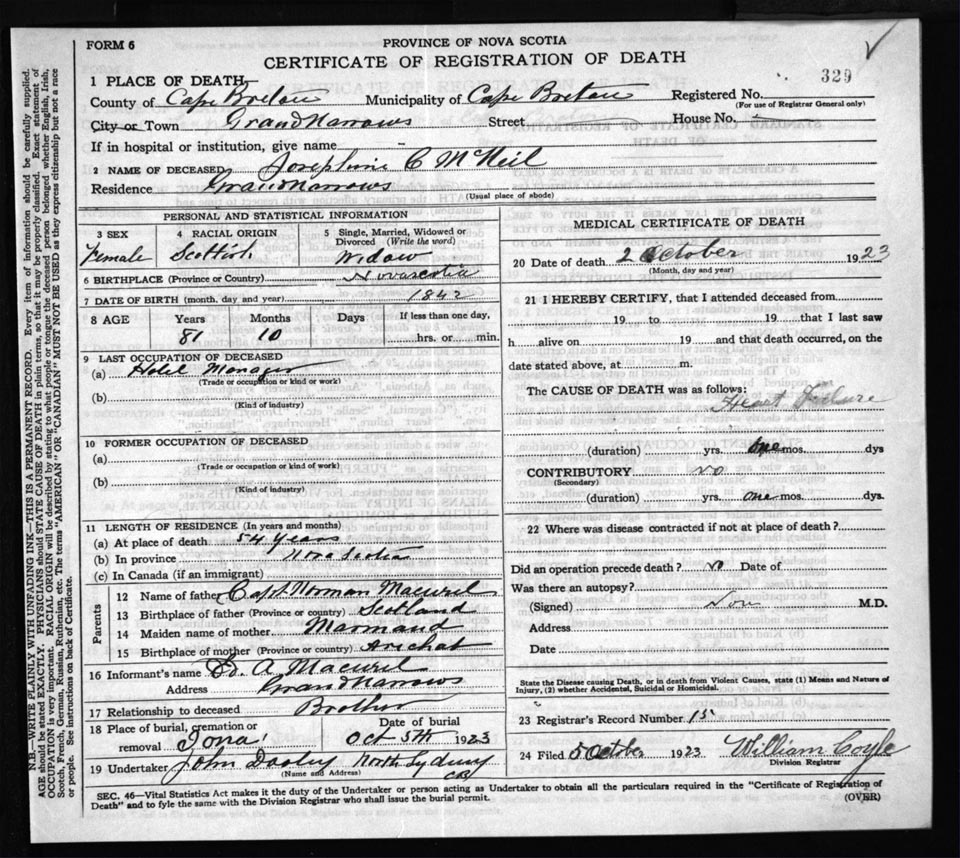 FORM 6
PROVINCE OF NOVA SCOTIA
CERTIFICATE OF REGISTRATION OF DEATH
329
1 PLACE OF DEATH
County of Cape Breton Municipality of Cape Breton Registered No.
(For use of Registrar General only)
City or Town Grand Narrows Street House No.
If in hospital or institution, give name
2 NAME OF DECEASED Josephine C McNeil
Residence Grand Narrows
(Usual place of abode)
PERSONAL AND STATISTICAL INFORMATION
3 SEX 4 RACIAL ORIGIN 5 Single, Married, Widowed or Divorced (Write the word)
Female Scottish Widow
6 BIRTHPLACE (Province or Country) Novascotia
7 DATE OF BIRTH (month, day and year) 1842
8 AGE Years Months Days If less than one day,
81 10 hrs. or min.
9 LAST OCCUPATION OF DECEASED
(a) Hotel Manager
(Trade or occupation or kind or work)
(b)
(Kind of industry)
10 FORMER OCCUPATION OF DECEASED
(a)
(Trade or occupation or kind of work)
(b)
(Kind of industry)
11 LENGTH OF RESIDENCE (In years and months)
(a) At place of death 54 years
(b) In province Nova Scotia
(c) In Canada (if an immigrant)
Parents
12 Name of father Capt. Norman
13 Birthplace of father (Province or country) Scotland
14 Maiden name of mother Marmaud
15 Birthplace of mother (Province or country) Arichat
16 Informant's name D. A
Address Grand Narrows
17 Relationship to deceased Brother
18 Place of burial, cremation or removal Iona Date of burial Oct 5th 1923
19 Undertaker John Dooley North Sydney CB
(Name and Address)
MEDICAL CERTIFICATE OF DEATH
20 Date of death 2 October 1923
(Month, day and year)
21 I HEREBY CERTIFY, that I attended deceased from
19 to 19 that I last saw
h alive on 19 and that death occurred, on the
date stated above, at m.
The CAUSE OF DEATH was as follows:
Heart Failure
(duration) yrs. one mos. dys
CONTRIBUTORY no
(Secondary)
(duration) yrs. one mos. dys.
22 Where was disease contracted if not at place of death?
Did an operation precede death? no Date of
Was there an autopsy?
(Signed) M.D.
Address
Date
State the Disease causing Death, or in death from Violent Causes, state (1) Means and Nature of
Injury, (2) whether Accidental, Suicidal or Homicidal.
23 Registrar's Record Number 15
24 Filed 5 October 1923 William Coyle
Division Registrar
SEC. 46—Vital Statistics Act makes it the duty of the Undertaker or person acting as Undertaker to obtain all the particulars required in the "Certificate of Registration of
Death" and to fyle the same with the Division Registrar who shall issue the burial permit.
(OVER)
N.B.—WRITE PLAINLY WITH UNFADING INK—THIS IS A PERMANENT RECORD. Every item of information should be carefully supplied.
AGE should be stated EXACTLY. PHYSICIANS should STATE CAUSE OF DEATH in plain terms, so that it may be properly classified. Exact statement of
OCCUPATION is very important. RACIAL ORIGIN will be described by stating to what people or tongue the deceased person belonged whether English, Irish,
Scotch, French, German, Russian, Ruthenian, etc. The terms "AMERICAN" OR "CANADIAN" MUST NOT BE USED as they express citizenship but not a race
or people. See instructions on back of Certificate.